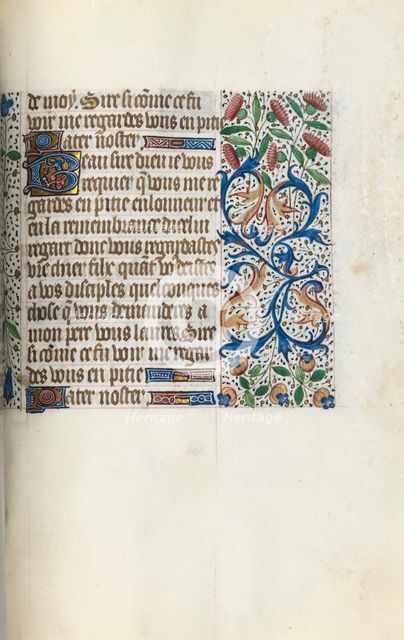 de moy. Sire si cõme ce fu
voir me regardes vous en pitie
Pater noster.
Beau sire dieu ie vous
requier q̃ vous me re
gardes en pitie en lonneur et
en la remembrance de celui
regart dont vous regardastes
vr̃e chier filz quãt
a vos disciples quelconques
chose q̃ vous demanderes a
mon pere vous laures. Sire
si cõme ce fu voir me regar
des vous en pitie
Pater noster.
Heritage Heritage